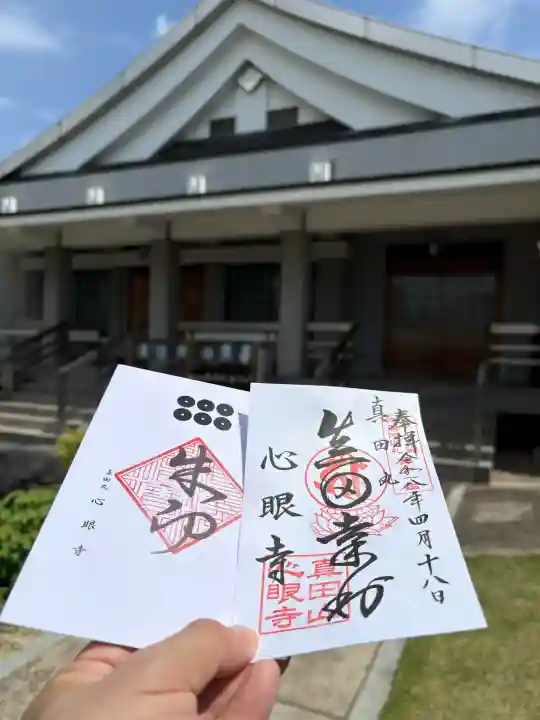 奉拝 令和八年四月十八日
真田丸
真田幸村
心眼寺
真田山
心眼寺
真田丸
心眼寺